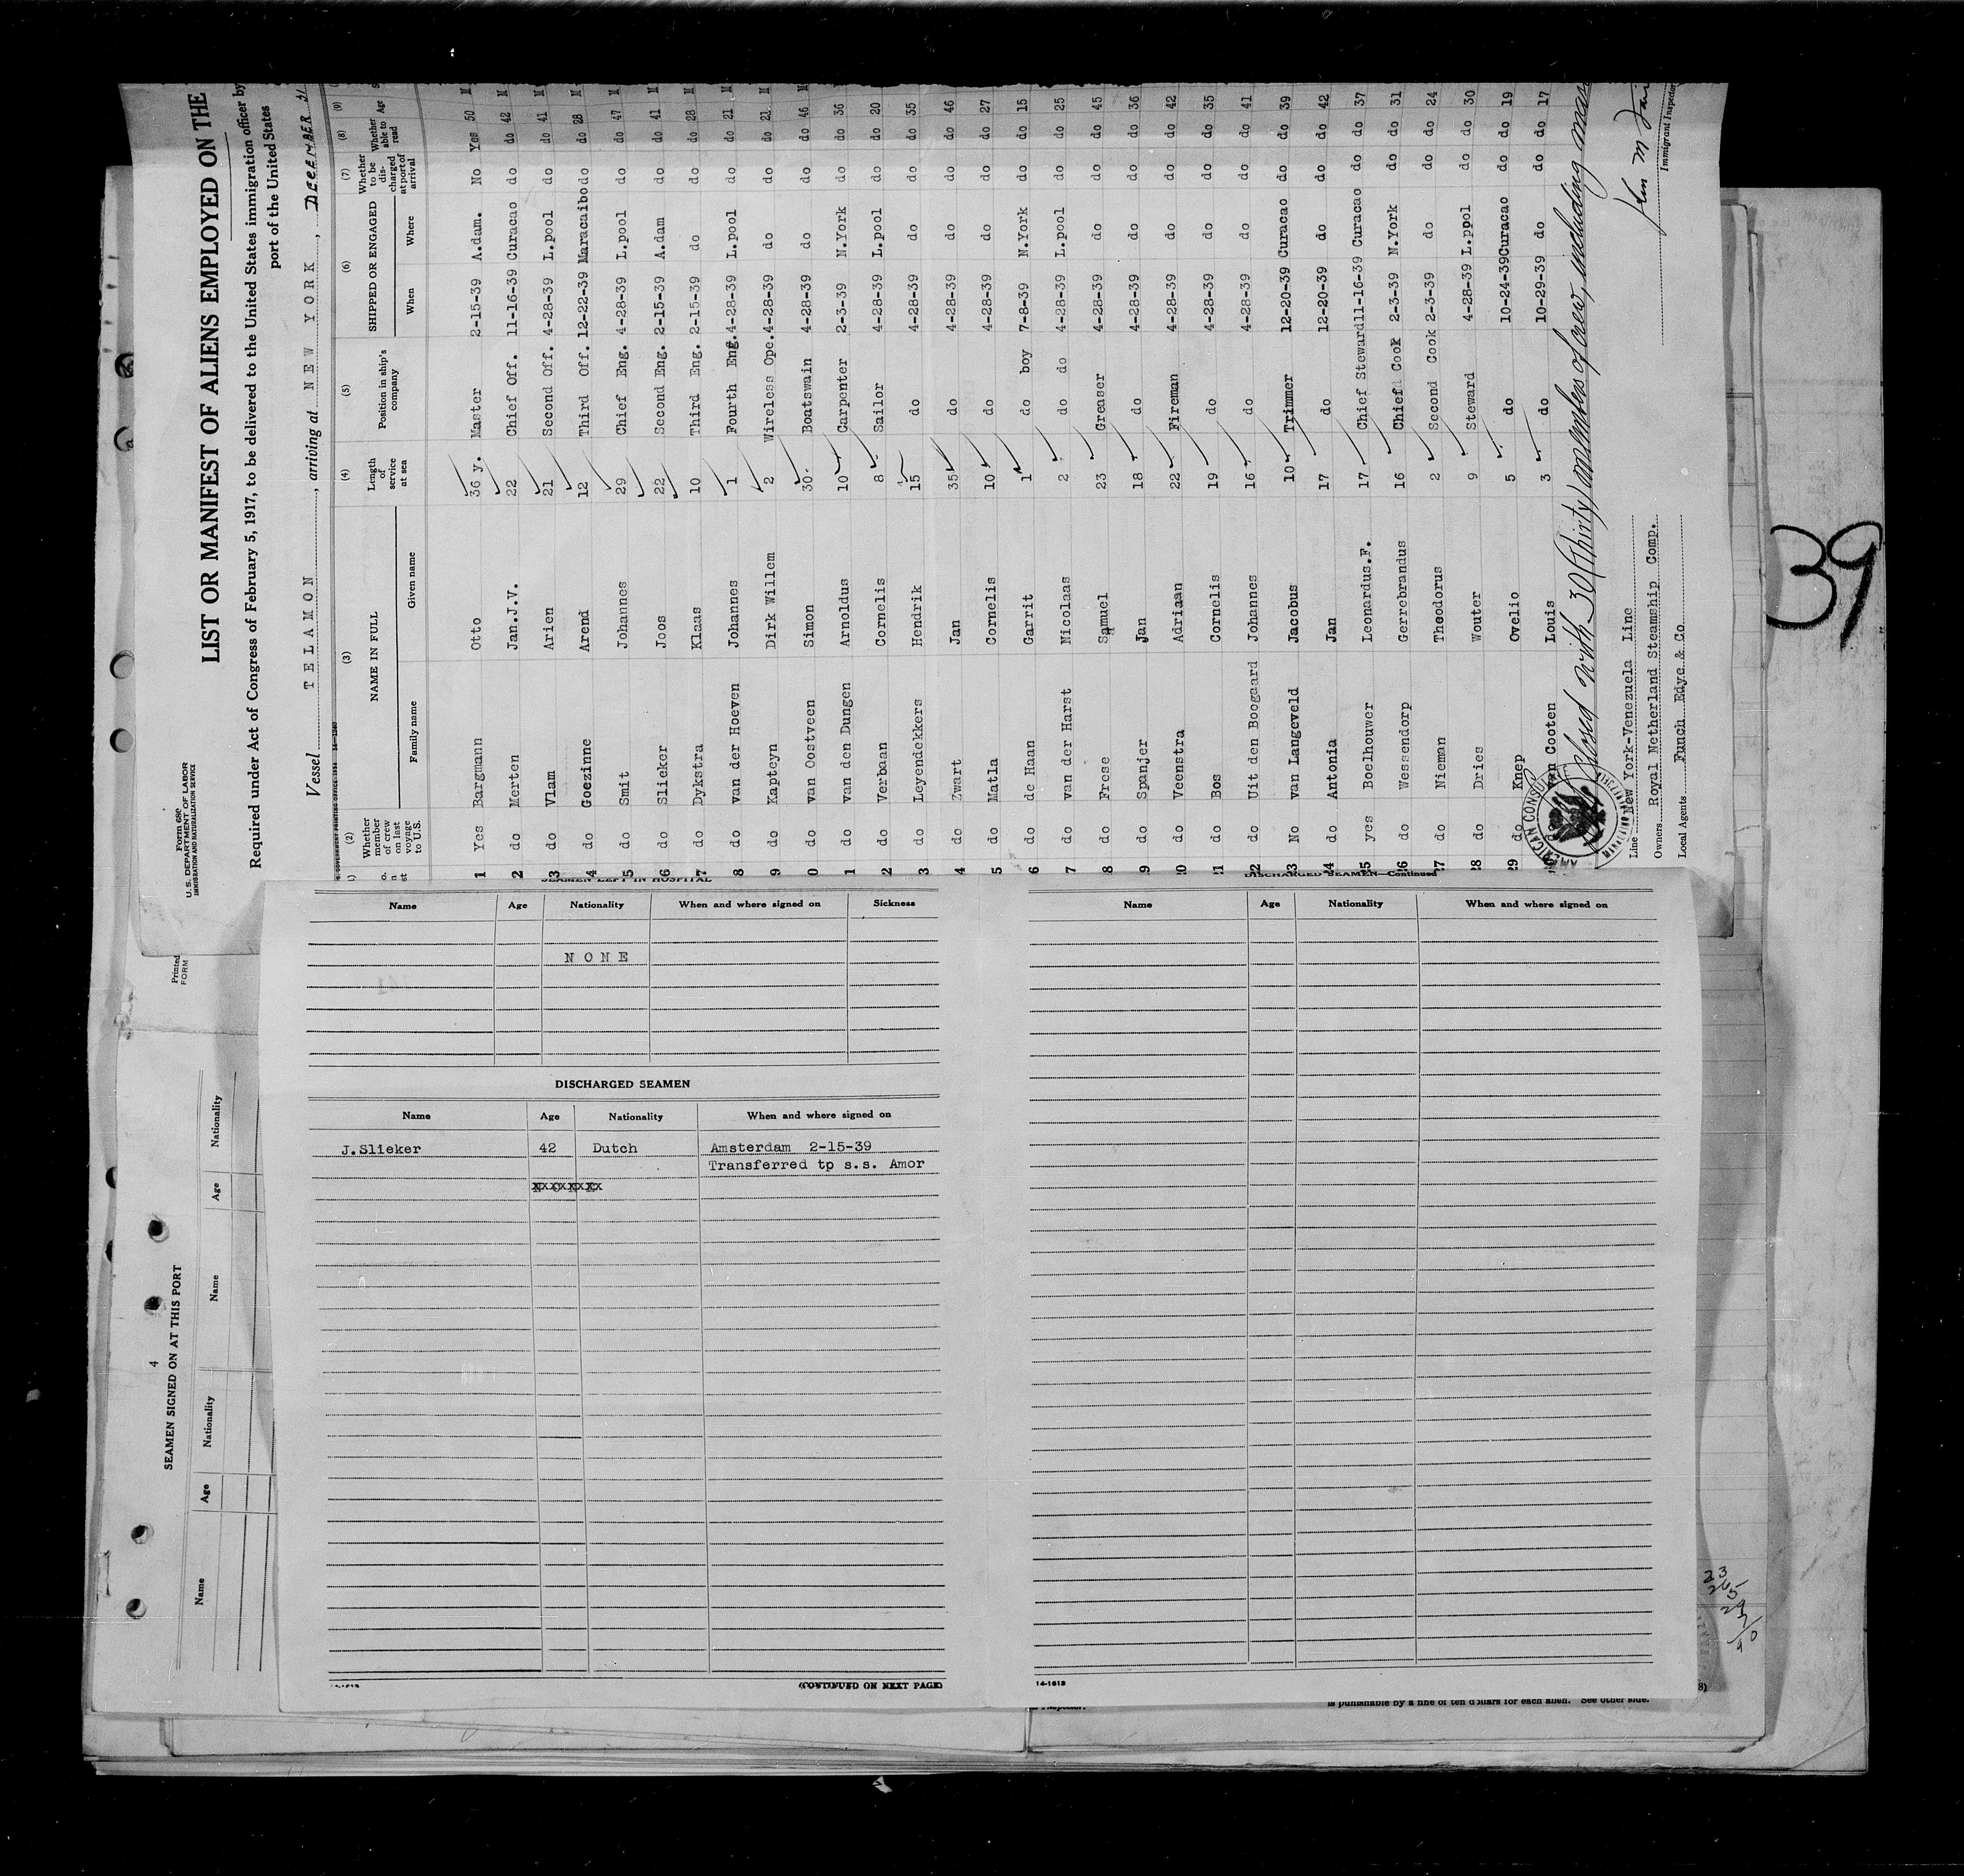 Form 680
U.S. DEPARTMENT OF LABOR
IMMIGRATION AND NATURALIZATION SERVICE
LIST OR MANIFEST OF ALIENS EMPLOYED ON THE
Required under Act of Congress of February 5, 1917, to be delivered to the United States immigration officer by
port of the United States
Vessel TELAMON, arriving at NEW YORK, DECEMBER 31
(2) (3) (4) (5) (6) (7) (8) (9)
Whether member of crew on last voyage to U.S. NAME IN FULL Family name Given name Length of service at sea Position in ship's company SHIPPED OR ENGAGED When Where Whether to be discharged at port of arrival Whether able to read Age
1 Yes Bargmann Otto 36 y. Master 2-15-39 A.dam. No Yes 50
2 do Merten Jan.J.V. 22 Chief Off. 11-16-39 Curacao do do 42
3 do Vlam Arien 21 Second Off. 4-28-39 L.pool do do 41
4 do Goezinne Arend 12 Third Off. 12-22-39 Maracaibo do do 28
5 do Smit Johannes 29 Chief Eng. 4-28-39 L.pool do do 47
6 do Slieker Joos 22 Second Eng. 2-15-39 A.dam do do 41
7 do Dykstra Klaas 10 Third Eng. 2-15-39 do do do 28
8 do van der Hoeven Johannes 1 Fourth Eng. 4-28-39 L.pool do do 21
9 do Kapteyn Dirk Willem 2 Wireless Ope. 4-28-39 do do do 21
0 do van Oostveen Simon 30 Boatswain 4-28-39 do do do 46
1 do van den Dungen Arnoldus 10 Carpenter 2-3-39 N.York do do 36
2 do Verbaan Cornelis 8 Sailor 4-28-39 L.pool do do 20
3 do Leyendekkers Hendrik 15 do 4-28-39 do do do 35
4 do Zwart Jan 35 do 4-28-39 do do do 46
5 do Matla Cornelis 10 do 4-28-39 do do do 27
6 do de Haan Garrit 1 do boy 7-8-39 N.York do do 15
7 do van der Harst Nicolaas 2 do do 4-28-39 L.pool do do 25
8 do Frese Samuel 23 Greaser 4-28-39 do do do 45
9 do Spanjer Jan 18 do 4-28-39 do do do 36
20 do Veenstra Adriaan 22 Fireman 4-28-39 do do do 42
21 do Bos Cornelis 19 do 4-28-39 do do do 35
22 do Uit den Boogaard Johannes 16 do 4-28-39 do do do 41
23 No van Langeveld Jacobus 10 Trimmer 12-20-39 Curacao do do 39
24 do Antonia Jan 17 do 12-20-39 do do do 42
25 yes Boelhouwer Leonardus.F. 17 Chief Steward 11-16-39 Curacao do do 37
26 do Wessendorp Gerrebrandus 16 Chief Cook 2-3-39 N.York do do 31
27 do Nieman Theodorus 2 Second Cook 2-3-39 do do do 24
28 do Dries Wouter 9 Steward 4-28-39 L.ppol do do 30
29 do Knep Ovelio 5 do 10-24-39 Curacao do do 19
van Cooten Louis 3 do 10-29-39 do do do 17
Closed with 30 (thirty) members of crew, including
AMERICAN CONSUL
Line New York-Venezuela Line
Owners Royal Netherland Steamship Comp.
Local Agents Funch Edye & Co
Immigrant Inspector
39
Printed
FORM
4
SEAMEN SIGNED ON AT THIS PORT
Name Age Nationality Name Age Nationality
SEAMEN LEFT IN HOSPITAL
Name Age Nationality When and where signed on Sickness
NONE
DISCHARGED SEAMEN
Name Age Nationality When and where signed on
J.Slieker 42 Dutch Amsterdam 2-15-39
Transferred tp s.s. Amor
(CONTINUED ON NEXT PAGE)
DISCHARGED SEAMEN—Continued
Name Age Nationality When and where signed on
14-1613
is punishable by a fine of ten dollars for each alien. See other side.